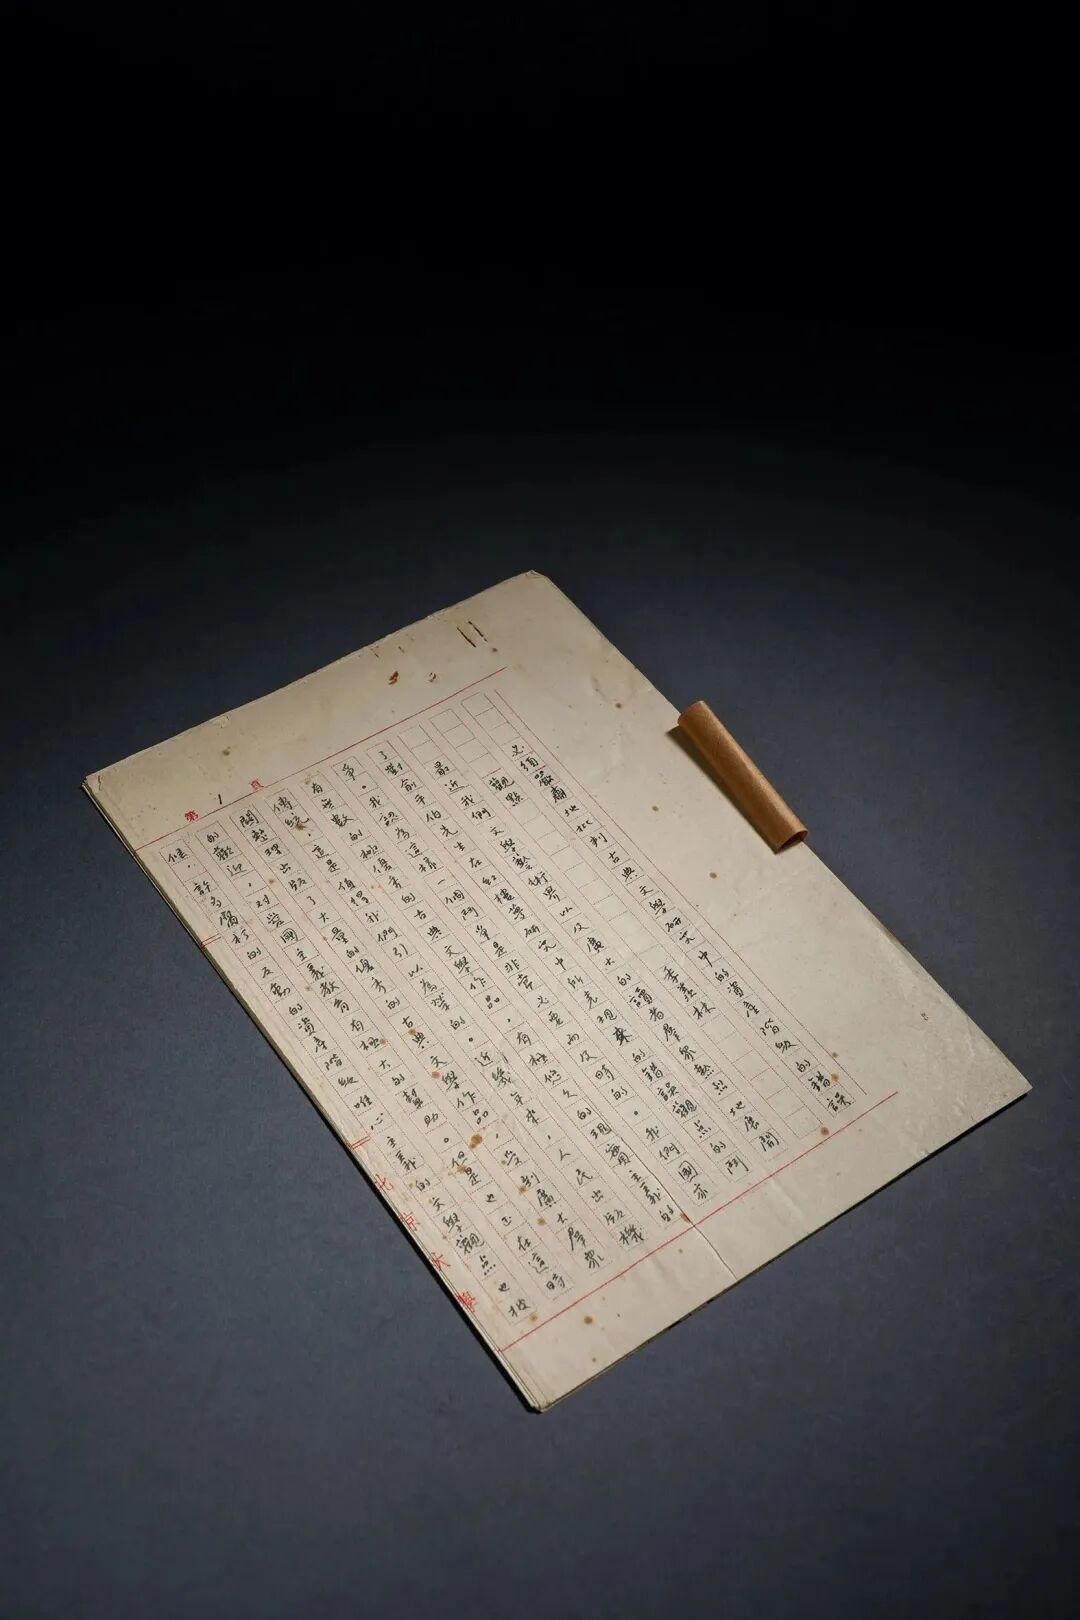 第 1 頁
必須嚴肅地批判古典文學研究中的資產階級的錯誤
觀點 季羨林
最近我們文學藝術界以及廣大的讀者羣眾熱烈地展開
了對俞平伯先生在紅樓夢研究中所表現來的錯誤觀点的鬥
爭。我認為這樣一個鬥爭是非常必要而及時的。我們國家
有無數的極優秀的古典文學作品,有極悠久的現實主義的
傳統,這是值得我們引以為榮的。近幾年來,人民出版機
關整理出版了大量的優秀的古典文學作品,受到廣大羣眾
的歡迎,对愛國主義教育有極大的幫助。但是也正在這時
候,許多腐朽的反動的資產階級唯心主義的文學觀点也被
北京大學